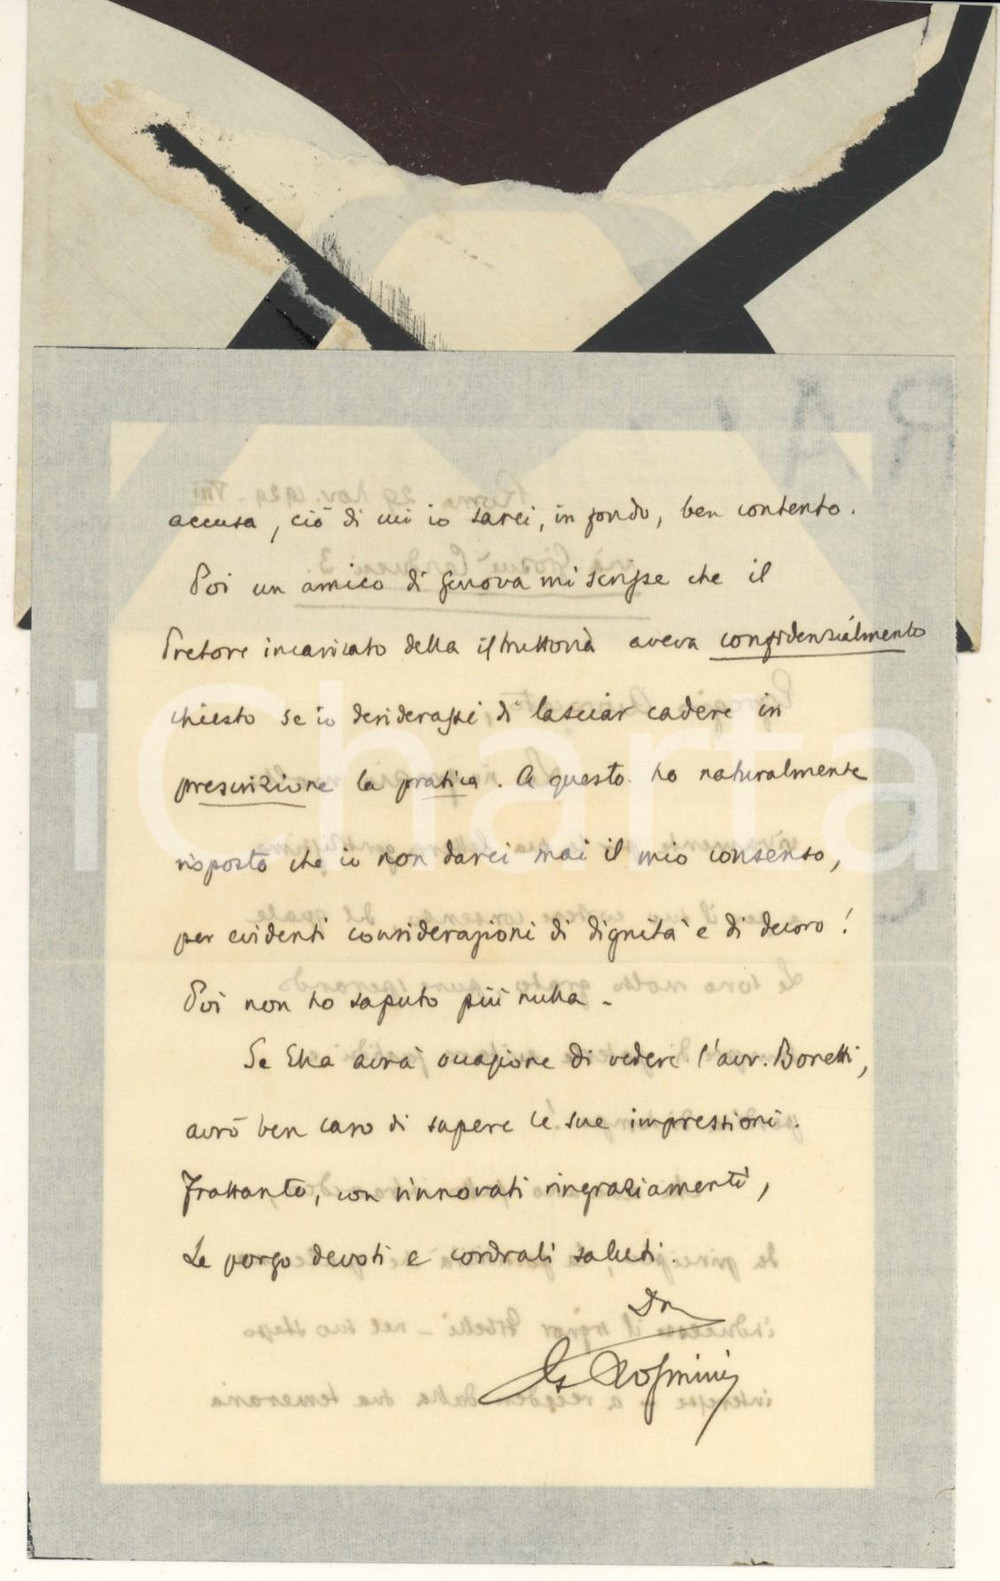 accusa, ciò di cui io sarei, in fondo, ben contento.
Poi un amico di Genova mi scrisse che il
Pretore incaricato della istruttoria aveva confidenzialmente
chiesto se io desiderassi di lasciar cadere in
prescrizione la pratica. A questo ho naturalmente
risposto che io non darei mai il mio consenso,
per evidenti considerazioni di dignità e di decoro!
Poi non ho saputo più nulla -
Se Ella avrà occasione di vedere l'avv. Bonetti,
avrò ben caro di sapere le sue impressioni.
Frattanto, con rinnovati ringraziamenti,
Le porgo devoti e cordiali saluti.
Rosmini
iCharta